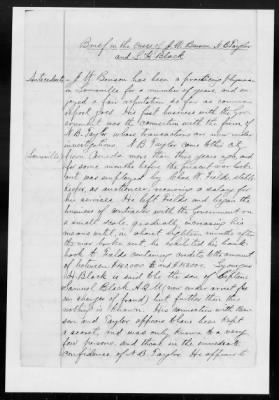 Brief in the cases of J. W. Benson, N. B. Taylor
and L. H. Black
Antecedents. J. W. Benson has been a practicing physician
in Louisville for a number of years, and en-
joyed a fair reputation as far as common
report goes. His first business with the Gov-
ernment was the connection with the firm of
N. B. Taylor whose transactions are now under
investigation. N. B. Taylor came to the city
Louisville from more than three years ago, and
for some months before the present war broke
out was employed by Chas. W. Fields, stable
keeper, as auctioneer, receiving a salary for
his services. He left Fields and began the
business of contractor with the Government on
a small scale, gradually increasing his
means until, in about eighteen months after
the war broke out, he exhibited his bank
book to Fields containing credits to the amount
of between and
H. Black is said to be the son of Captain
Samuel Black A.Q.M. (now under arrest for
on charges of fraud) but further than this
nothing is known. His connection with Ben-
son and Taylor appears to have been kept
a secret, and was only known to a very
few persons, and those in the immediate
confidence of N. B. Taylor. He appears to